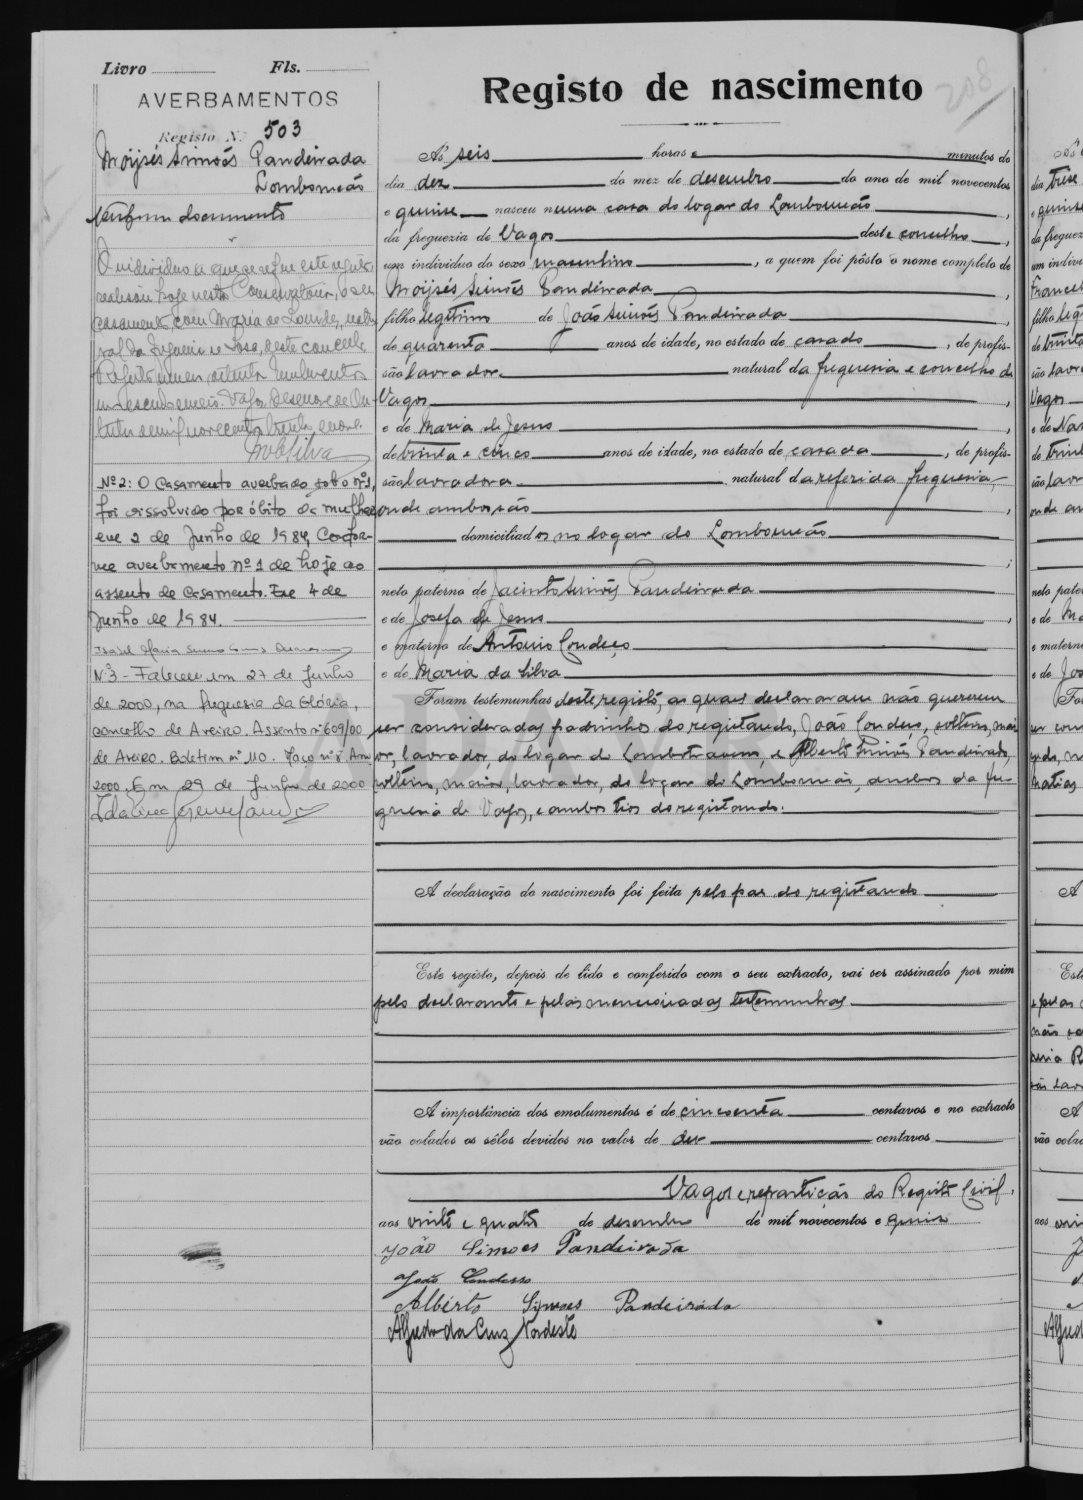 Livro Fls.
AVERBAMENTOS
Registo N.º 503
Moysés Simões Pandeirada
Lombomeão
Nenhum documento
O individuo a que se refere este registo
realisou hoje nesta Conservatoria, o seu
casamento com Maria de Lourdes, natu-
ral da freguesia de Sosa, deste concelho
Registo numero oitenta
Vagos, Desenove de Ou-
tubro de mil novecentos trinta e nove.
Silva
Nº 2: O Casamento averbado sob o nº 1,
foi dissolvido por óbito da mulher
em 2 de Junho de 1984, Confor-
me averbamento nº 1 de hoje ao
assento de Casamento. Em 4 de
Junho de 1984.
Isabel Maria
Nº 3 - Faleceu em 27 de Junho
de 2000, na freguesia da Glória,
concelho de Aveiro. Assento nº 609/00
de Aveiro. Boletim nº 110. Maço nº 8. Ano
2000. Em 29 de Junho de 2000
208
Registo de nascimento
Ás seis horas e minutos do
dia dez do mez de desembro do ano de mil novecentos
e quinse nasceu numa casa do logar do Lombomeão,
da freguezia de Vagos deste concelho,
um individuo do sexo masculino, a quem foi pôsto o nome completo de
Moysés Simões Pandeirada,
filho legitimo de João Simões Pandeirada,
de quarenta anos de idade, no estado de casado, de profis-
são lavrador natural da freguesia e concelho de
Vagos,
e de Maria de Jesus,
de trinta e cinco anos de idade, no estado de casada, de profis-
são lavradora natural da referida freguesia,
onde ambos são,
domiciliados no logar do Lombomeão
;
neto paterno de Jacinto Simões Pandeirada
e de Josefa de Jesus,
e materno de António Condeço
e de Maria da Silva
Foram testemunhas deste registo, as quaes declararam não quererem
ser consideradas padrinhos do registando, João Condeço, solteiro, mai-
or, lavrador, do logar de Lombomeão, e Alberto Simões Pandeirada,
solteiro, maior, lavrador, do logar do Lombomeão, ambos da fre-
guesia de Vagos, e ambos tios do registando.
A declaração do nascimento foi feita pelo pae do registando
Este registo, depois de lido e conferido com o seu extracto, vai ser assinado por mim
pelo declarante e pelas mencionadas testemunhas
A importância dos emolumentos é de cincoenta centavos e no extracto
vão colados os sêlos devidos no valor de dez centavos
Vagos e repartição do Registo Civil,
aos vinte e quatro de desembro de mil novecentos e quinze
João Simoes Pandeirada
João Condesso
Albérto Simoes Pandeiráda
Alfredo da Cruz Nordeste